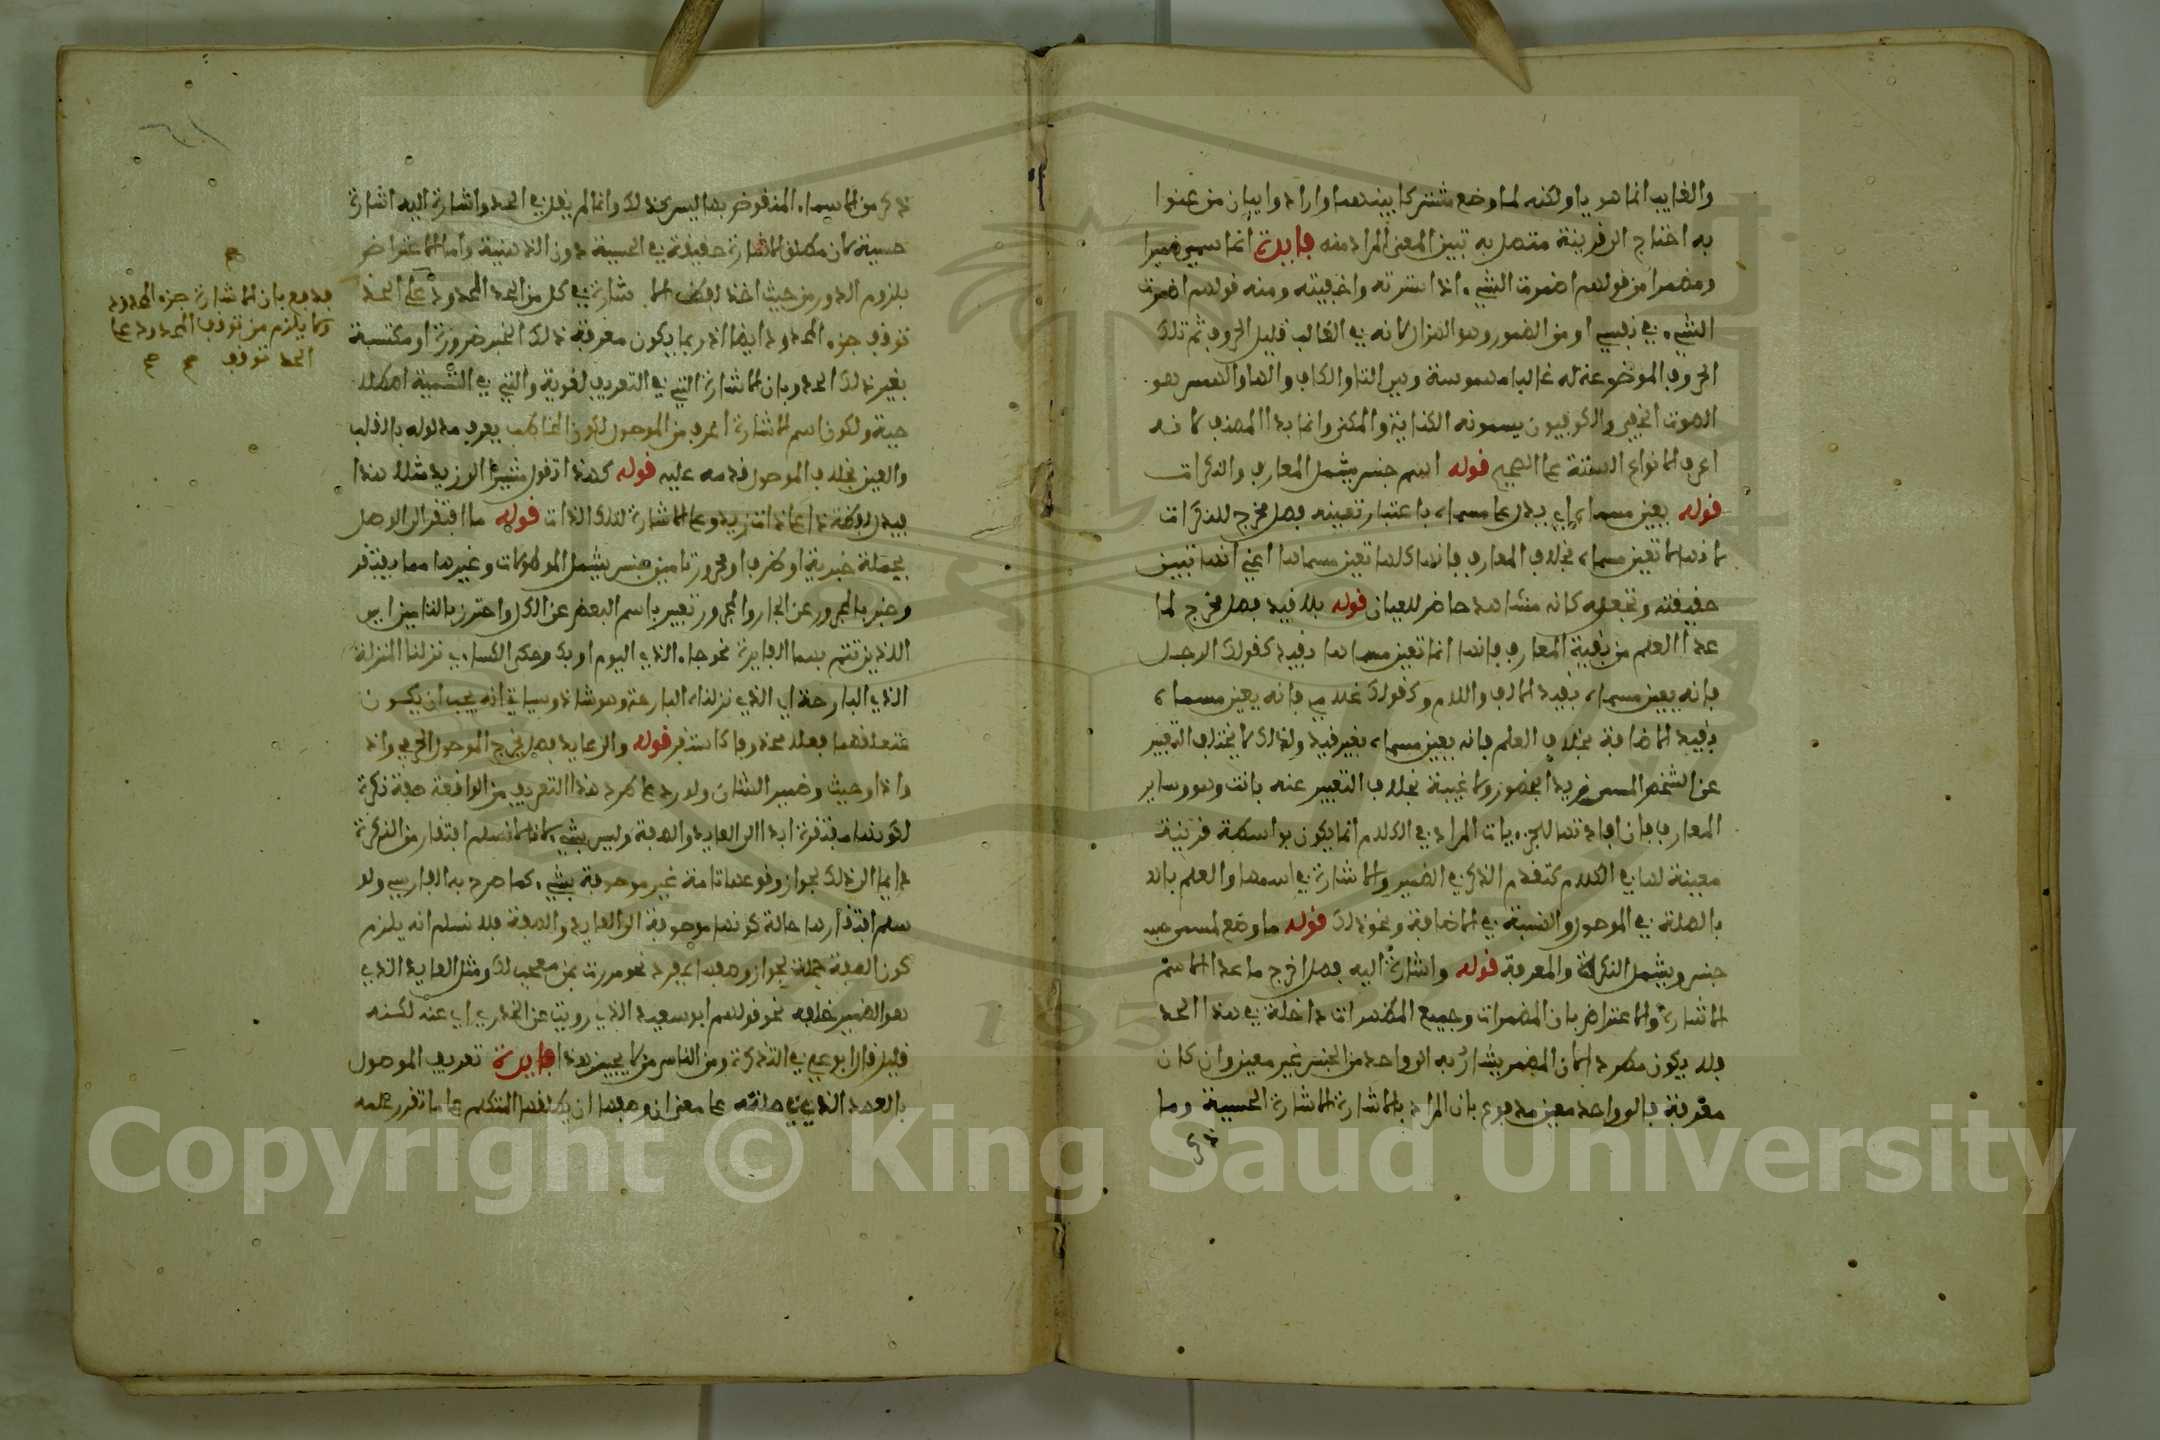 والغايب انما هو يا ولكنه لما وضع مشتركا بينهما وارادوا بيان من عنوا
به احتاج الى قرينة متصل به تبين المعنى المراد منه فايدة انما سمي ضميرا
ومضمرا من قولهم اضمرت الشيء اذا سترته واخفيته ومنه قولهم اضمرت
الشيء في نفسي او من الضمور وهو الهزال لانه في الغالب قليل الحروف ثم تلك
الحروف الموضوعة له غالبا مهموسة وهي التا والكاف والها والهمس هو
الصوت الخفي والكوفيون يسمونه الكناية والمكنى وانما بدا المصنف لانه
اعرف الانواع الستة على الصحيح قوله اسم جنس يشمل المعارف والنكرات
قوله يعين مسماه اي يدل على مسماه باعتبار تعينه فصل مخرج للنكرات
لانها لا تعين مسماه بخلاف المعارف فانها كلها تعين مسماها اعني انها تبين
حقيقته وتجعله كانه مشاهد حاضر للعيان قوله بلا قيد فصل مخرج لما
عدا العلم من بقية المعارف فانها انما تعين مسماها بقيد كقولك الرجل
فانه يعين مسماه بقيد الالف واللام وكقولك غلامي فانه يعين مسماه
بقيد الاضافة بخلاف العلم فانه يعين مسماه بغير قيد ولذلك لا يختلف التعبير
عن الشخص المسمى زيدا بحضور ولا غيبة بخلاف التعبير عنه بانت وهو وساير
المعارف فان افادتها للجزءيات المراد في الكلام انما يكون بواسطة قرينة
معينة لها في الكلام كتقدم الذكر في الضمير والاشارة في اسمها والعلم بال
بالصلة في الموصول والنسبة في الاضافة ونحو ذلك قوله ما وضع لمسمى
جنس ويشمل النكرة والمعرفة قوله واشارة اليه فصل اخرج ما عدا الاسم
الاشارة والاعتراض بان المضمرات وجميع المظهرات داخلة في هذا الحد
فلا يكون مطردا لان المضمر يشار به الى واحد من الجنس غير معين وان كان
معرفة فالى واحد معين مدفوع بان المراد بالاشارة الاشارة الحسية وما
ذكر
ذكر من الاسماء المنقوض بها ليس كذلك وانما لم يقل في الحد واشارة اليه اشارة
حسية لان مطلق الاشارة حقيقة في الحسية دون الذهنية واما الاعتراض
بلزوم الدور من حيث اخذ لفظ الاشارة في كل من الحد المحدود على الحد
توقف جزء المحدود ايضا اذ ربما يكون معرفة ذلك الخبر ضرورة او مكتسبة
بغير ذلك الحد وبان الاشارة التي في التعريف لغوية والتي في التسمية اصطلا
حية ولكون اسم الاشارة اعرف من الموصول لكون المخاطب يعرف مدلوله بالقلب
والعين بخلاف الموصول قدمه عليه قوله كهذا تقول مشيرا الى زيد مثلا هذا
فيدل لفظة ذا على ذات زيد وعلى الاشارة لتلك الذات قوله ما افتقر الى الوصل
بجملة خبرية او ظرف او مجرور تامين جنس يشمل الموصولات وغيرها مما يفتقر
وعبر بالمجرور عن الجار والمجرور تعبير باسم البعض عن الكل واحترز بالتامين اي
اللذين تتم بهما الفايدة نحو جاء الذي اليوم او بك وحكى الكساءي نزلنا المنزلة
الذي البارحة اي الذي نزلناه البارحة وهو شاذ وسياتي انه يجب ان يكون
متعلقهما فعلا محذوفا كاستقر قوله والى عايد فصل يخرج الموصول الحرفي واذ
واذا وحيث وضمير الشان ولورد على طرد هذا التعريف من الواقعة صفة نكرة
لكونها مفتقرة ابدا الى العايد والصفة وليس بشيء لانا لا نسلم افتقار من النكرة
دايما الى ذلك لجواز وقوعها تامة غير موصوفة بشيء كما صرح به الفارسي ولو
سلم افتقارها حالة كونها موصوفة الى العايد والصفة فلا نسلم انه يلزم
كون الصفة جملة لجواز وصفها بمفرد نحو مررت بمن معجب لك ومثل العايد الذي
هو الضمير خلفه نحو قولهم ابو سعيد الذي رويت عن الخدري اي عنه لكنه
قليل قال ابو علي في التذكرة ومن الناس من لا يجيز هذا فايدة تعريف الموصول
بالعهد الذي في صلته على معنى ان وضعها ان يطلقها المتكلم على ما تقرر علمه
فدفع بان الاشارة جزء المحدود
ولا يلزم من توقف المحدود على
الحد توقف صح صح